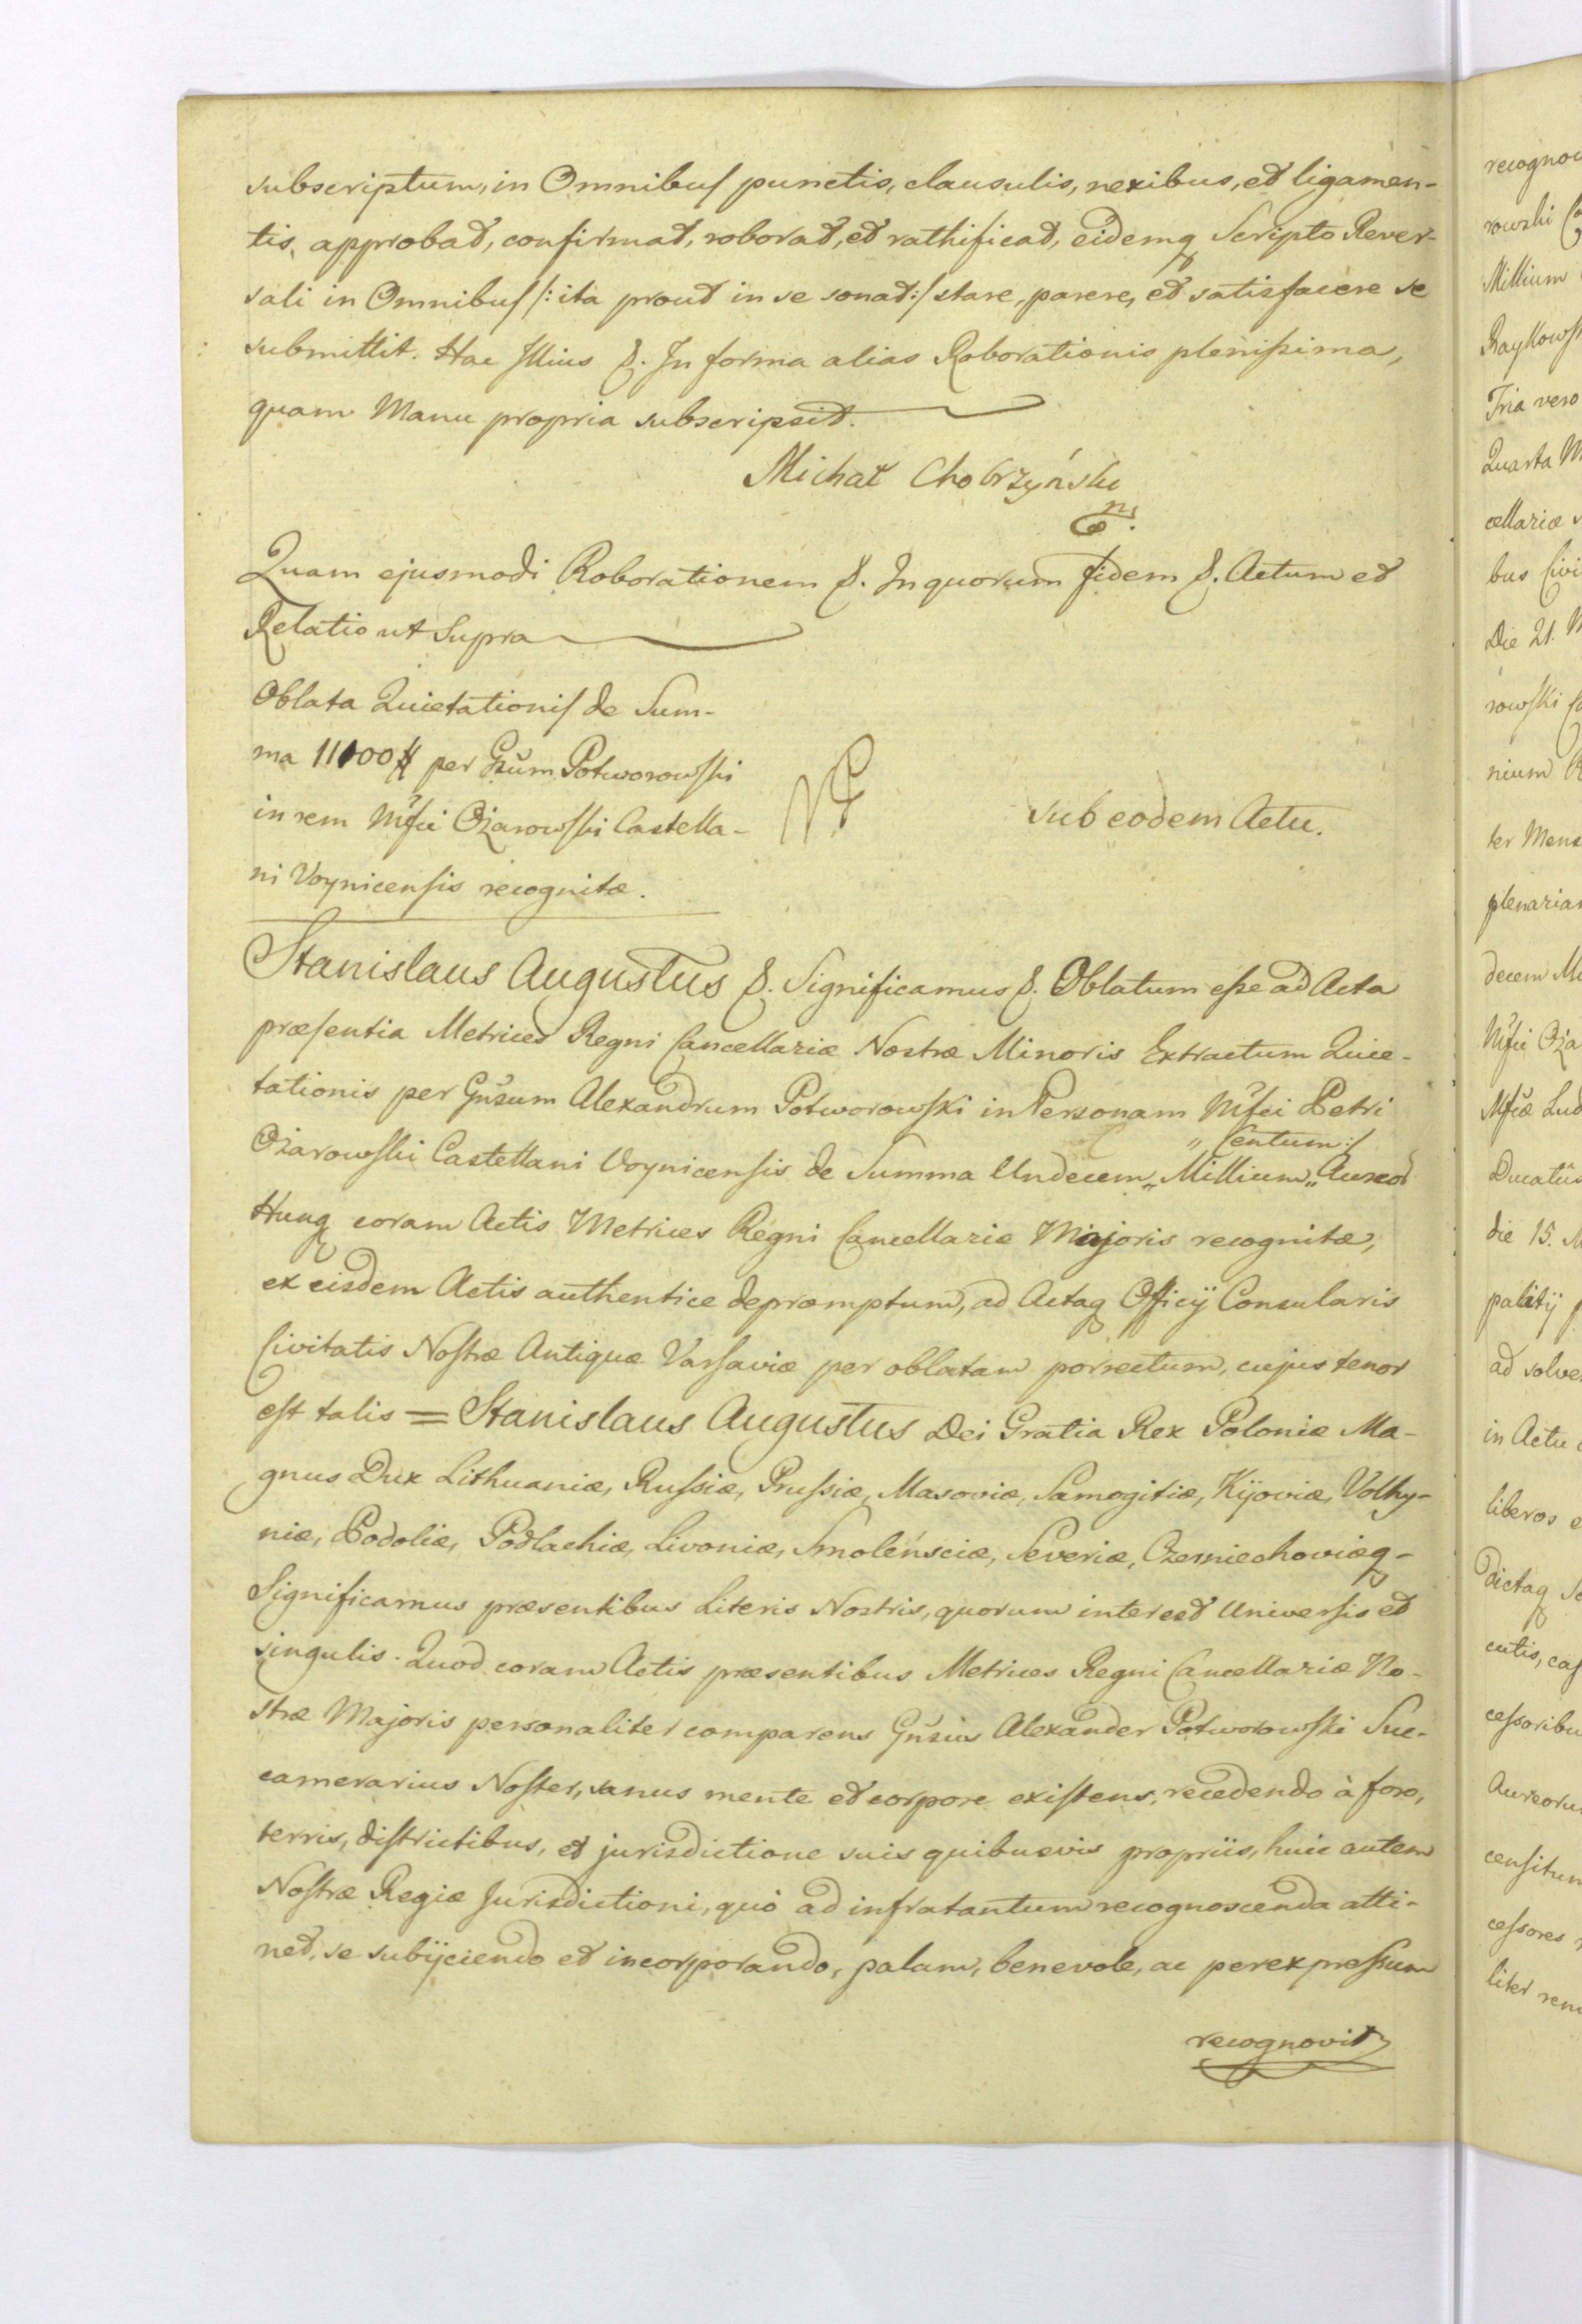 subscriptum, in Omnibus punctis, clausulis, nexibus, et ligamen-
tis, approbat, confirmat, roborat, et rathificat, eidemq Scripto Rever-
sali in Omnibus /: ita prout in se sonat :/ stare, parere, et satisfacere se
submittit. Hac Illius &. In forma alias Roborationis plenissima,
quam Manu propria subscripsit.
Michał Chobrzyński
Quam ejusmodi Roborationem &. In quorum fidem &. Actum et
Relatio ut Supra
Oblata Quietationis de Sum-
ma 11100 # per Gsum Potworowski
in rem Mfci Ożarowski Castella-
ni Voynicensis recognitæ.
sub eodem Actu.
Stanislaus Augustus &. Significamus &. Oblatum esse ad Acta
præsentia Metrices Regni Cancellariæ Nostræ Minoris Extractum Quie-
tationis per Gnsum Alexandrum Potworowski in Personam Mfci Petri
„ Centum :/
Ożarowski Castellani Voynicensis de Summa Undecem „ Millium „ Aureor
Hunq coram Actis Metrices Regni Cancellariæ Majoris recognitæ,
ex eisdem Actis authentice depromptum, ad Actaq Officij Consularis
Civitatis Nostræ Antiquæ Varsaviæ per oblatam porrectum, cujus tenor
est talis = Stanislaus Augustus Dei Gratia Rex Poloniæ Ma-
gnus Dux Lithuaniæ, Russiæ, Prussiæ, Masoviæ, Samogitiæ, Kijoviæ, Volhy-
niæ, Podoliæ, Podlachiæ, Livoniæ, Smolénsciæ, Severiæ, Czerniechoviæq-
Significamus præsentibus Literis Nostris, quorum interest Universis et
singulis. Quod coram Actis præsentibus Metrices Regni Cancellariæ No-
stræ Majoris personaliter comparens Gnsus Alexander Potworowski Suc-
camerarius Noster, sanus mente et corpore existens, recedendo à foro,
terris, districtibus, et jurisdictione suis quibusvis propriis, huic autem
Nostræ Regiæ Jurisdictioni, quò ad infratantum recognoscenda atti-
net, se subijciendo et incorporando, palam, benevole, ac per expressum
recognovit
recognov
rowski
Millium
Raykowsk
Tria vero
Quarta M
cellariæ
bus Civi
Die 21. M
rowski
nium
ter Mens
plenariam
decem Mi
Mfci Oża
Mfcæ Lud
Ducatûs
die 15. M
palatij
ad solve
in Actu
liberos e
dictaq
cutis, cas
cessoribu
Aureoru
censitum
cessores
liter ren